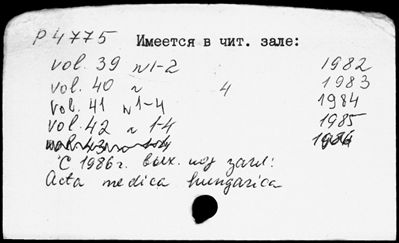 р 4775 Имеется в чит. зале:
vol. 39 n 1-2 1982
vol. 40 n 4 1983
vol. 41 n 1-4 1984
vol. 42 n 1-4 1985
vol. 43 1986
С 1986 г. вых. под загл:
Acta medica hungarica